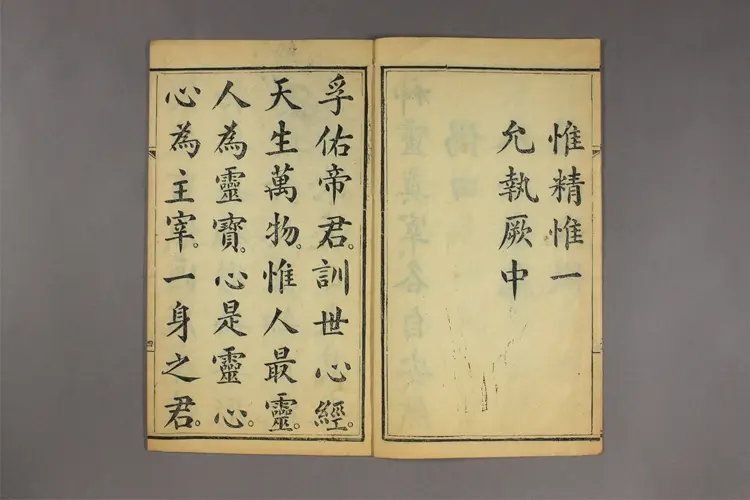 惟精惟一
允執厥中
孚佑帝君。訓世心經。
天生萬物。惟人最靈。
人為靈寶。心是靈心。
心為主宰。一身之君。